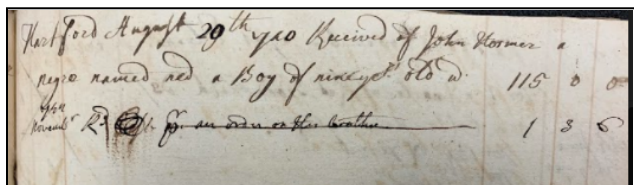 Hartford August 29th 1750 Received of John Hosmer a
negro named ned a Boy of nine yrs old 115 0 0
Novembr Rd pr an order on His brother 1 3 6